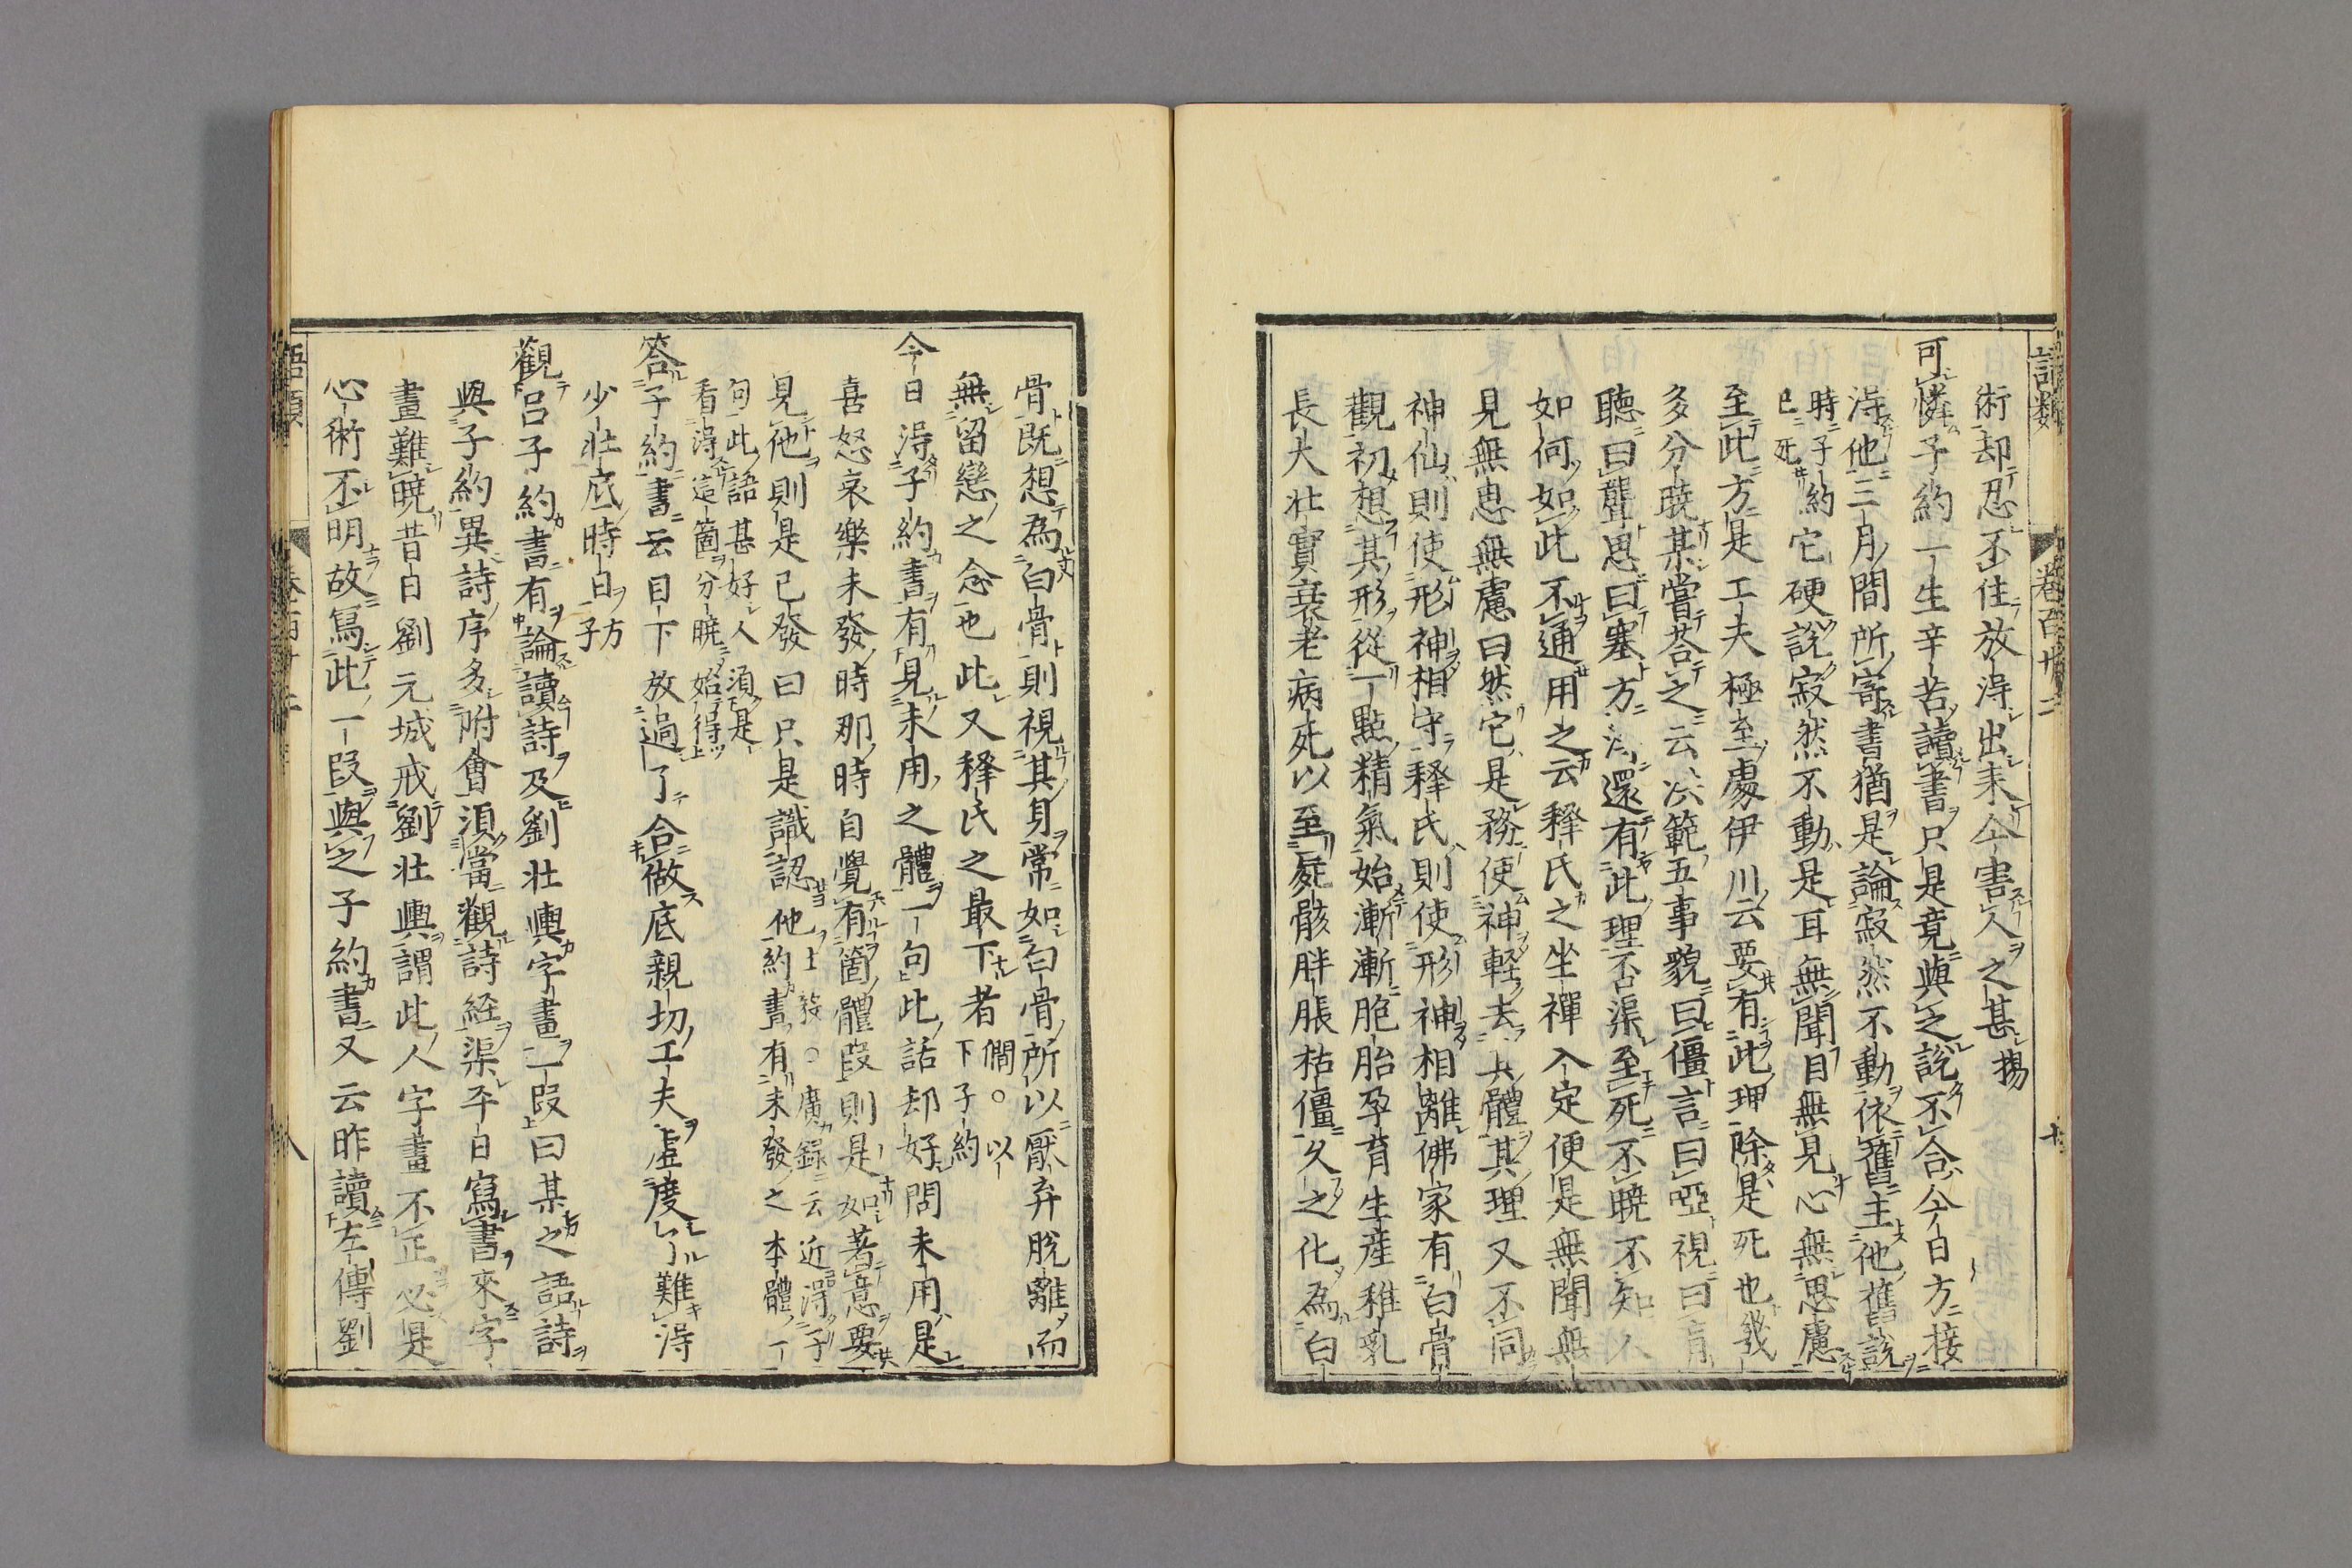 語類 卷百廿二 十
術却忍不住放淂出來今害人之甚掦
可憐子約一生辛苦讀書只是竟與之說不合今日方接
淂他三月間所寄書猶是論寂然不動依舊主他舊說
時子約已死
它硬說寂然不動是耳無聞目無見心無思慮
至此方是工夫極至處伊川云要有此理除是死也幾
多分曉某嘗荅之云洪範五事貌曰僵言曰啞視曰盲
聽曰聾思曰塞方淂還有此理否渠至死不曉不知人
如何如此不通用之云釋氏之坐禪入定便是無聞無
見無思無慮曰然它是務使神軽去其體其理又不同
神仙則使形神相守釋氏則使形神相離佛家有白骨
觀初想其形從一點精氣始漸漸胞胎孕育生產稚乳
長大壯實衰老病死以至屍骸胖脹枯僵久之化為白
骨既想為白骨則視其身常如白骨所以厭弃脫離而
無留戀之念也此又釋氏之最下者僩。以下子約
今日淂子約書有見未用之體一句此話却好問未用是
喜怒哀樂未發時那時自覺有箇體段則是如著意要
見他則是已發曰只是識認他士毅。廣録云近淂子約書有未發之本體一
句此語甚好人須是看淂這箇分曉始得
答子約書云目下放過了合做底親切工夫虛度了難淂
少壯底時日方子
觀呂子約書有論讀詩及劉壯輿字畫一段曰某之語詩
與子約異詩序多附會須當觀詩経渠平日寫書來字
畫難曉昔日劉元城戒劉壯輿謂此人字畫不正必是
心術不明故寫此一段與之子約書又云昨讀左傳劉
語類 八